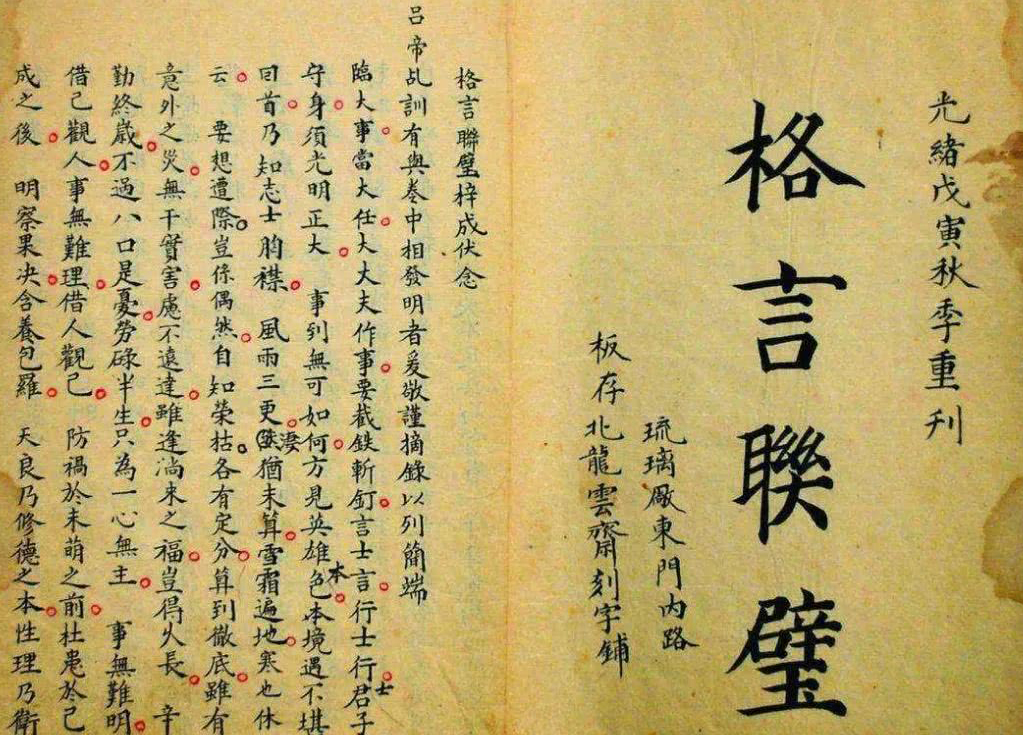 光緒戊寅秋季重刊
格言聯璧
琉璃厰東門內路
板存北龍雲齋刻字鋪
格言聯璧梓成伏念
吕帝乩訓有與卷中相發明者爰敬謹摘錄以列簡端
臨大事當大任大大夫作事要截鉄斬釘言士言行士行君子
士
守身須光明正大 事到無可如何方見英雄色本境遇不堪
本
回首乃知志士胸襟 風雨三更猶未算雪霜遍地寒也休
淒
云 要想遭際豈係偶然自知榮枯各有定分算到徹底雖有
意外之災無干實害慮不遠達雖逢淌来之福豈得久長 辛
勤終歳不過八口是憂勞碌半生只為一心無主 事無難明
借己觀人事無難理借人觀己 防禍於未萌之前杜患於已
成之後 明察果决含養包羅 天良乃修德之本性理乃衛